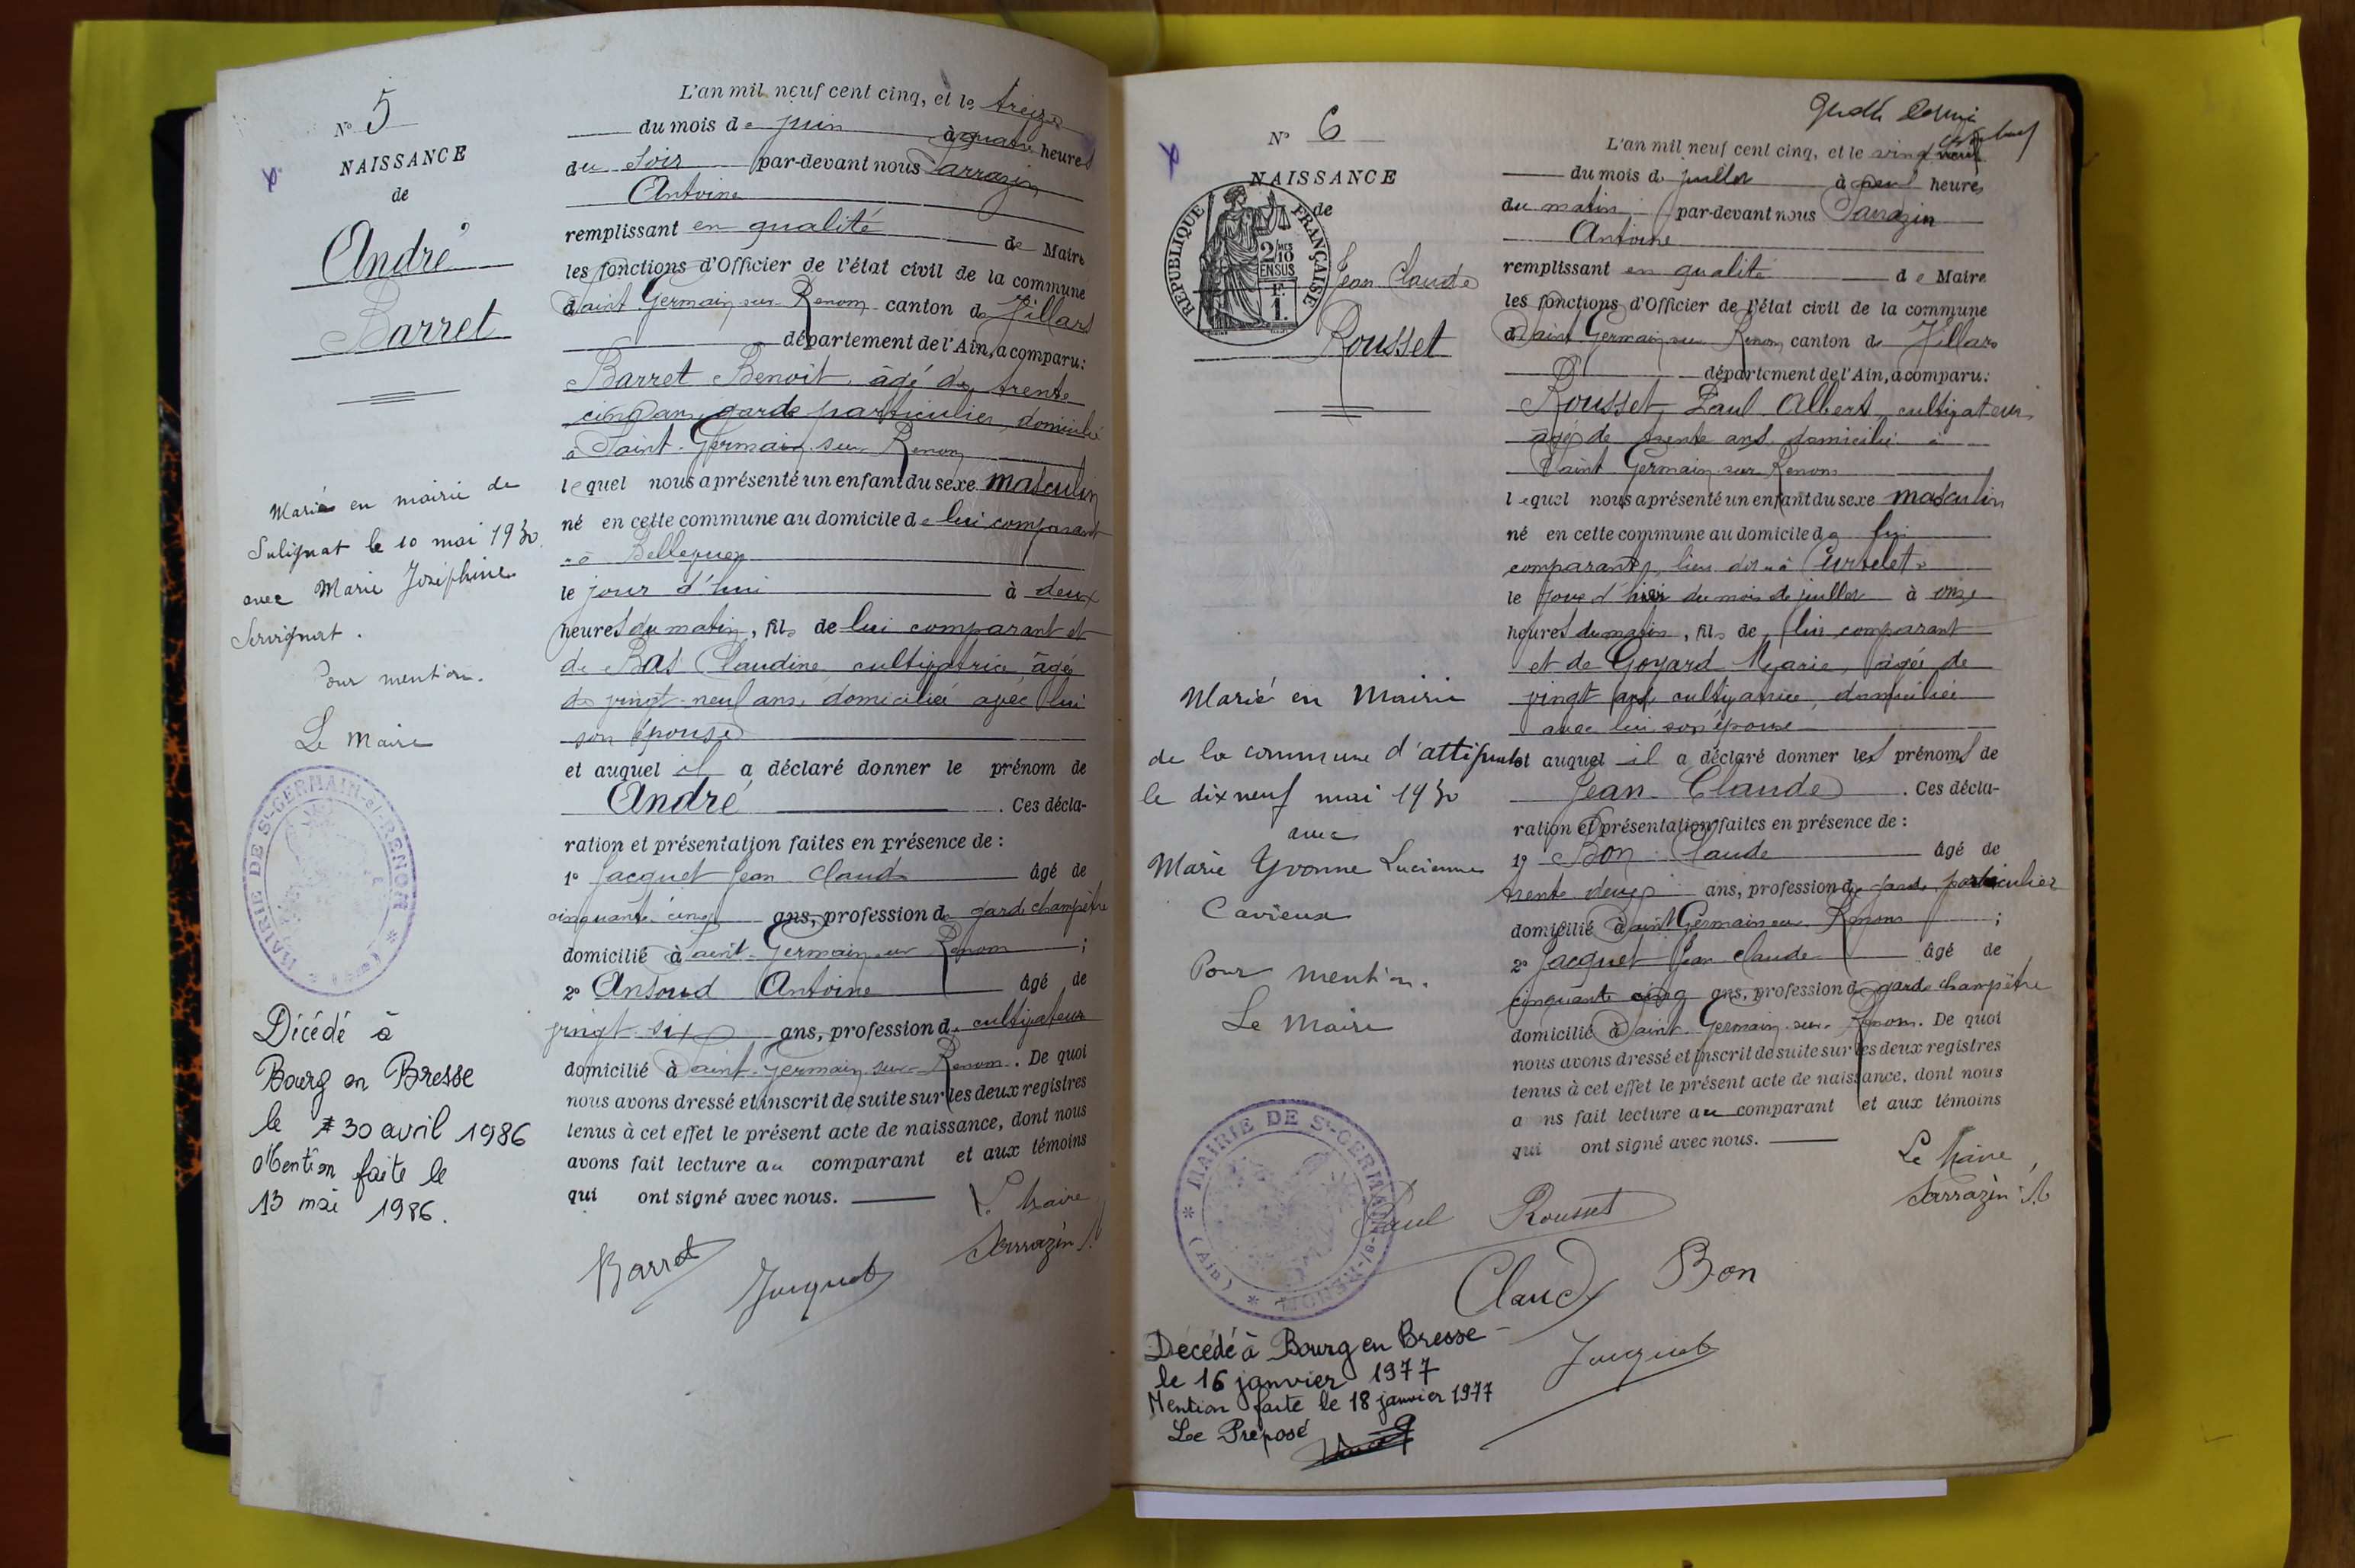 N° 5
NAISSANCE
de
André
Barret
Marié en mairie de
Sulignat le 10 mai 1930
avec Marie Joséphine
Servignat.
Pour mention.
Le Maire
MAIRIE DE St-GERMAIN-s/-RENON * (Ain) *
Décédé à
Bourg en Bresse
le 30 avril 1986
Mention faite le
13 mai 1986.
L'an mil neuf cent cinq, et le treize
du mois de juin à quatre heures
du soir par-devant nous Sarrazin
Antoine
remplissant en qualité de Maire
les fonctions d'Officier de l'état civil de la commune
de Saint Germain sur Renom canton de Villars
département de l'Ain, a comparu:
Barret Benoit, âgé de trente
cinq ans, garde particulier, domicilié
à Saint-Germain sur Renom
lequel nous a présenté un enfant du sexe masculin
né en cette commune au domicile de lui comparant
à
le jour d'hui à deux
heures du matin, fils de lui comparant et
de Bas Claudine cultivatrice âgée
de vingt-neuf ans, domiciliée avec lui
son épouse
et auquel il a déclaré donner le prénom de
André. Ces décla-
ration et présentation faites en présence de :
1° Jacquet Jean Claude âgé de
cinquante cinq ans, profession de garde champêtre
domicilié à Saint-Germain sur Renom ;
2° Ansoud Antoine âgé de
vingt six ans, profession de cultivateur
domicilié à Saint-Germain sur Renom. De quoi
nous avons dressé et inscrit de suite sur les deux registres
tenus à cet effet le présent acte de naissance, dont nous
avons fait lecture au comparant et aux témoins
qui ont signé avec nous.
Le Maire
Sarrazin A
Barret
Jacquet
N° 6
NAISSANCE
de
REPUBLIQUE FRANÇAISE
2/10 MES
EN SUS
F.
1.
Jean Claude
Rousset
Marié en Mairie
de la commune d'attignat
le dix neuf mai 1930
avec
Marie Yvonne Lucienne
Cavieux
Pour mention.
Le Maire
* MAIRIE DE St-GERMAIN-s/-RENON * (Ain)
Décédé à Bourg en Bresse
le 16 janvier 1977
Mention faite le 18 janvier 1977
Le Préposé
L'an mil neuf cent cinq, et le vingt neuf
du mois de juillet à neuf heures
du matin par-devant nous Sarrazin
Antoine
remplissant en qualité de Maire
les fonctions d'Officier de l'état civil de la commune
de Saint Germain sur Renom canton de Villars
département de l'Ain, a comparu:
Rousset, Paul Albert, cultivateur,
âgé de trente ans domicilié à
Saint Germain sur Renom
lequel nous a présenté un enfant du sexe masculin
né en cette commune au domicile de lui
comparant, lieu dit à Curtelet
le jour d'hier du mois de juillet à onze
heures du matin, fils de lui comparant
et de Goyard Marie, âgée de
vingt ans cultivatrice, domiciliée
avec lui son épouse
et auquel il a déclaré donner les prénoms de
Jean-Claude. Ces décla-
ration et présentation faites en présence de :
1° Bon Claude âgé de
trente deux ans, profession de garde particulier
domicilié à Saint Germain sur Renom ;
2° Jacquet Jean Claude âgé de
cinquante cinq ans, profession de garde champêtre
domicilié à Saint-Germain-sur-Renom. De quoi
nous avons dressé et inscrit de suite sur les deux registres
tenus à cet effet le présent acte de naissance, dont nous
a ns fait lecture au comparant et aux témoins
qui ont signé avec nous.
Le Maire,
Sarrazin A
Paul Rousset
Claude Bon
Jacquet